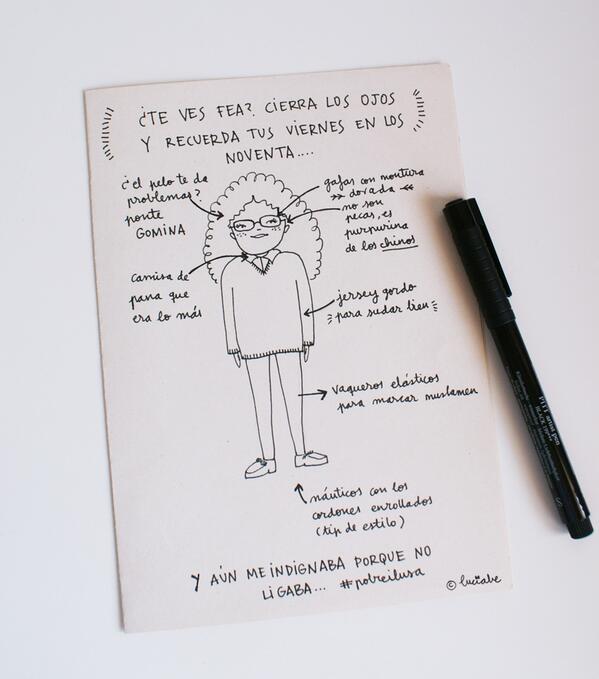 ¿TE VES FEA? CIERRA LOS OJOS
Y RECUERDA TUS VIERNES EN LOS
NOVENTA....
¿el pelo te da
problemas?
ponte
GOMINA
gafas con montura
dorada
no son
pecas, es
purpurina
de los chinos
camisa de
pana que
era lo más
jersey gordo
para sudar bien
vaqueros elásticos
para marcar muslamen
náuticos con los
cordones enrollados
(tip de estilo)
Y AÚN ME INDIGNABA PORQUE NO
LIGABA... #pobreilusa
© luciabe
PITT artist pen